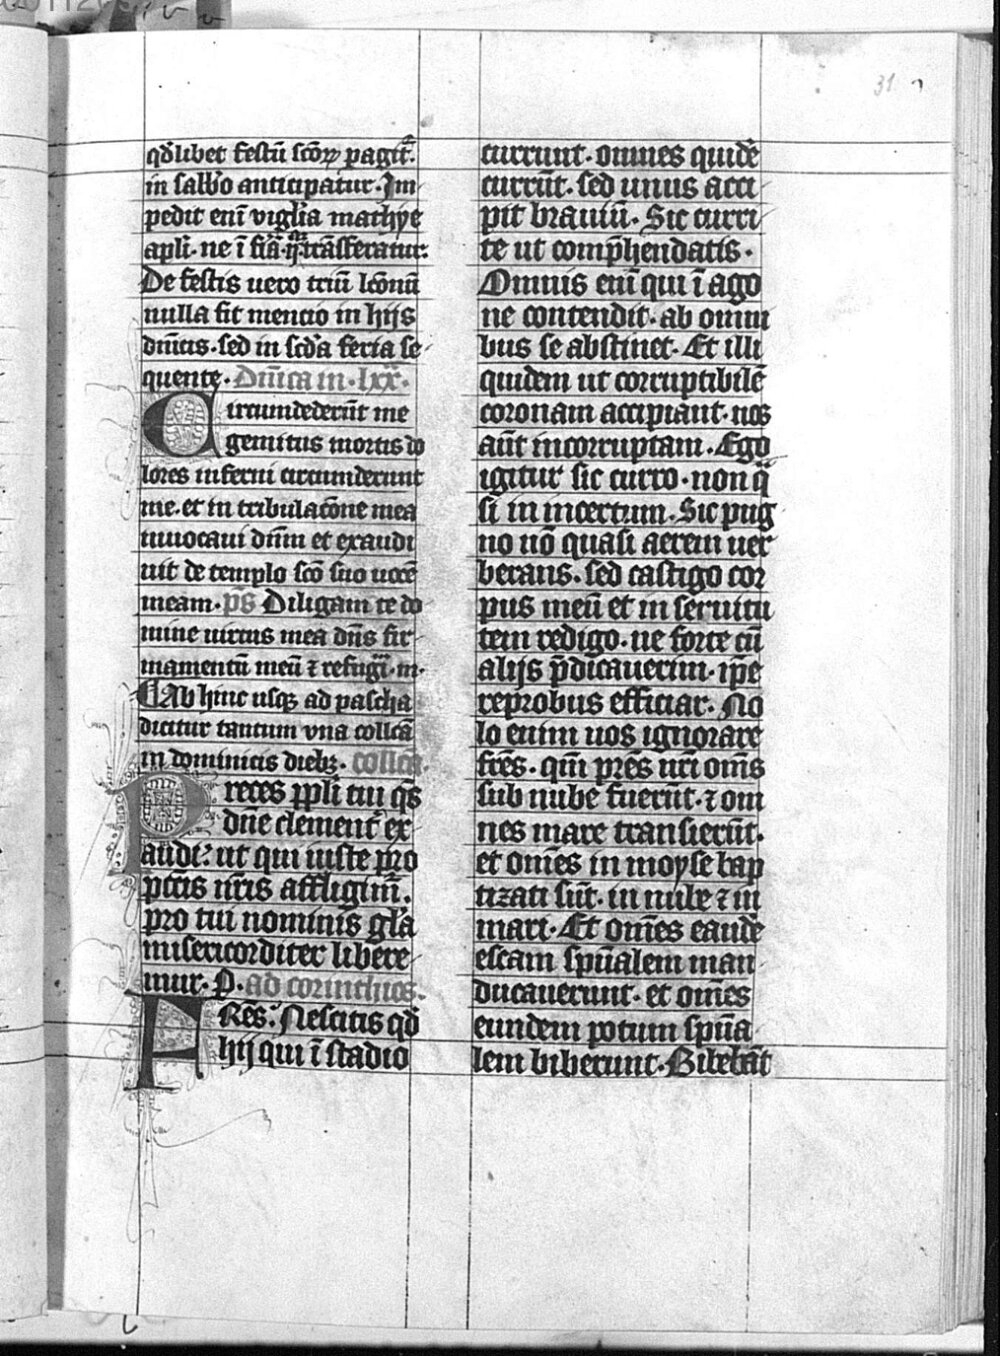 31
qđlibet festū scōꝝ pagit᷑.
in sabb̄o anticipatur. Im
pedit enī vigl̄ia mathye
apl̄i. ne ī fīa. iiii. trāsferatur.
De festis uero triū lc̄onū
nulla fit mencio in hijs
dn̄icis. sed in scd̄a feria se
quente. Dn̄ica in .lxx.
Circumdederūt me
gemitus mortis do
lores inferni circumderunt
me. et in tribulac̄one mea
inuocaui dn̄m et exaudi
uit de templo sc̄o suo uocē
meam. ps̄ Diligam te do
mine uirtus mea dn̄s fir
mamentū meū ⁊ refugī. m.
Ab hinc usqꝫ ad pascha
dicitur tantum vna collc̄a
in dominicis diebꝫ. collc̄a.
Preces ppl̄i tui q̄s
dn̄e clement᷑ ex
audi: ut qui iuste pro
pctīs nr̄is affligim᷑.
pro tui nominis gl̄a
misericorditer libere
mur. P. ad corinthios.
FRēs. Nescitis qđ
hij qui ī stadio
currunt. omnes quidē
currūt. sed unus acci
pit brauiū. Sic curri
te ut comp̄hendatis.
Omnis enī qui ī ago
ne contendit. ab omni
bus se abstinet. Et illi
quidem ut corruptibilē
coronam accipiant. nos
aūt incorruptam. Ego
igitur sic curro. non q̄
si in incertum. Sic pug
no nō quasi aerem uer
berans. sed castigo cor
pus meū et in seruitu
tem redigo. ne forte cū
alijs p̄dicauerim. ip̄e
reprobus efficiar. No
lo enim uos ignorare
fr̄es. qm̄ pr̄es nr̄i om̄s
sub nube fuerūt. ⁊ om
nes mare transierūt.
et om̄es in moyse bap
tizati sūt. in nube ⁊ in
mari. Et om̄es eandē
escam spūalem man
ducauerunt. et om̄es
eundem potum spūa
lem biberunt. Bibebāt